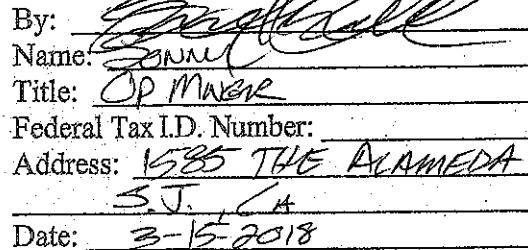 By:
Name: SONNY
Title: OP MNGR
Federal Tax I.D. Number:
Address: 1585 THE ALAMEDA
S.J., CA
Date: 3-15-2018